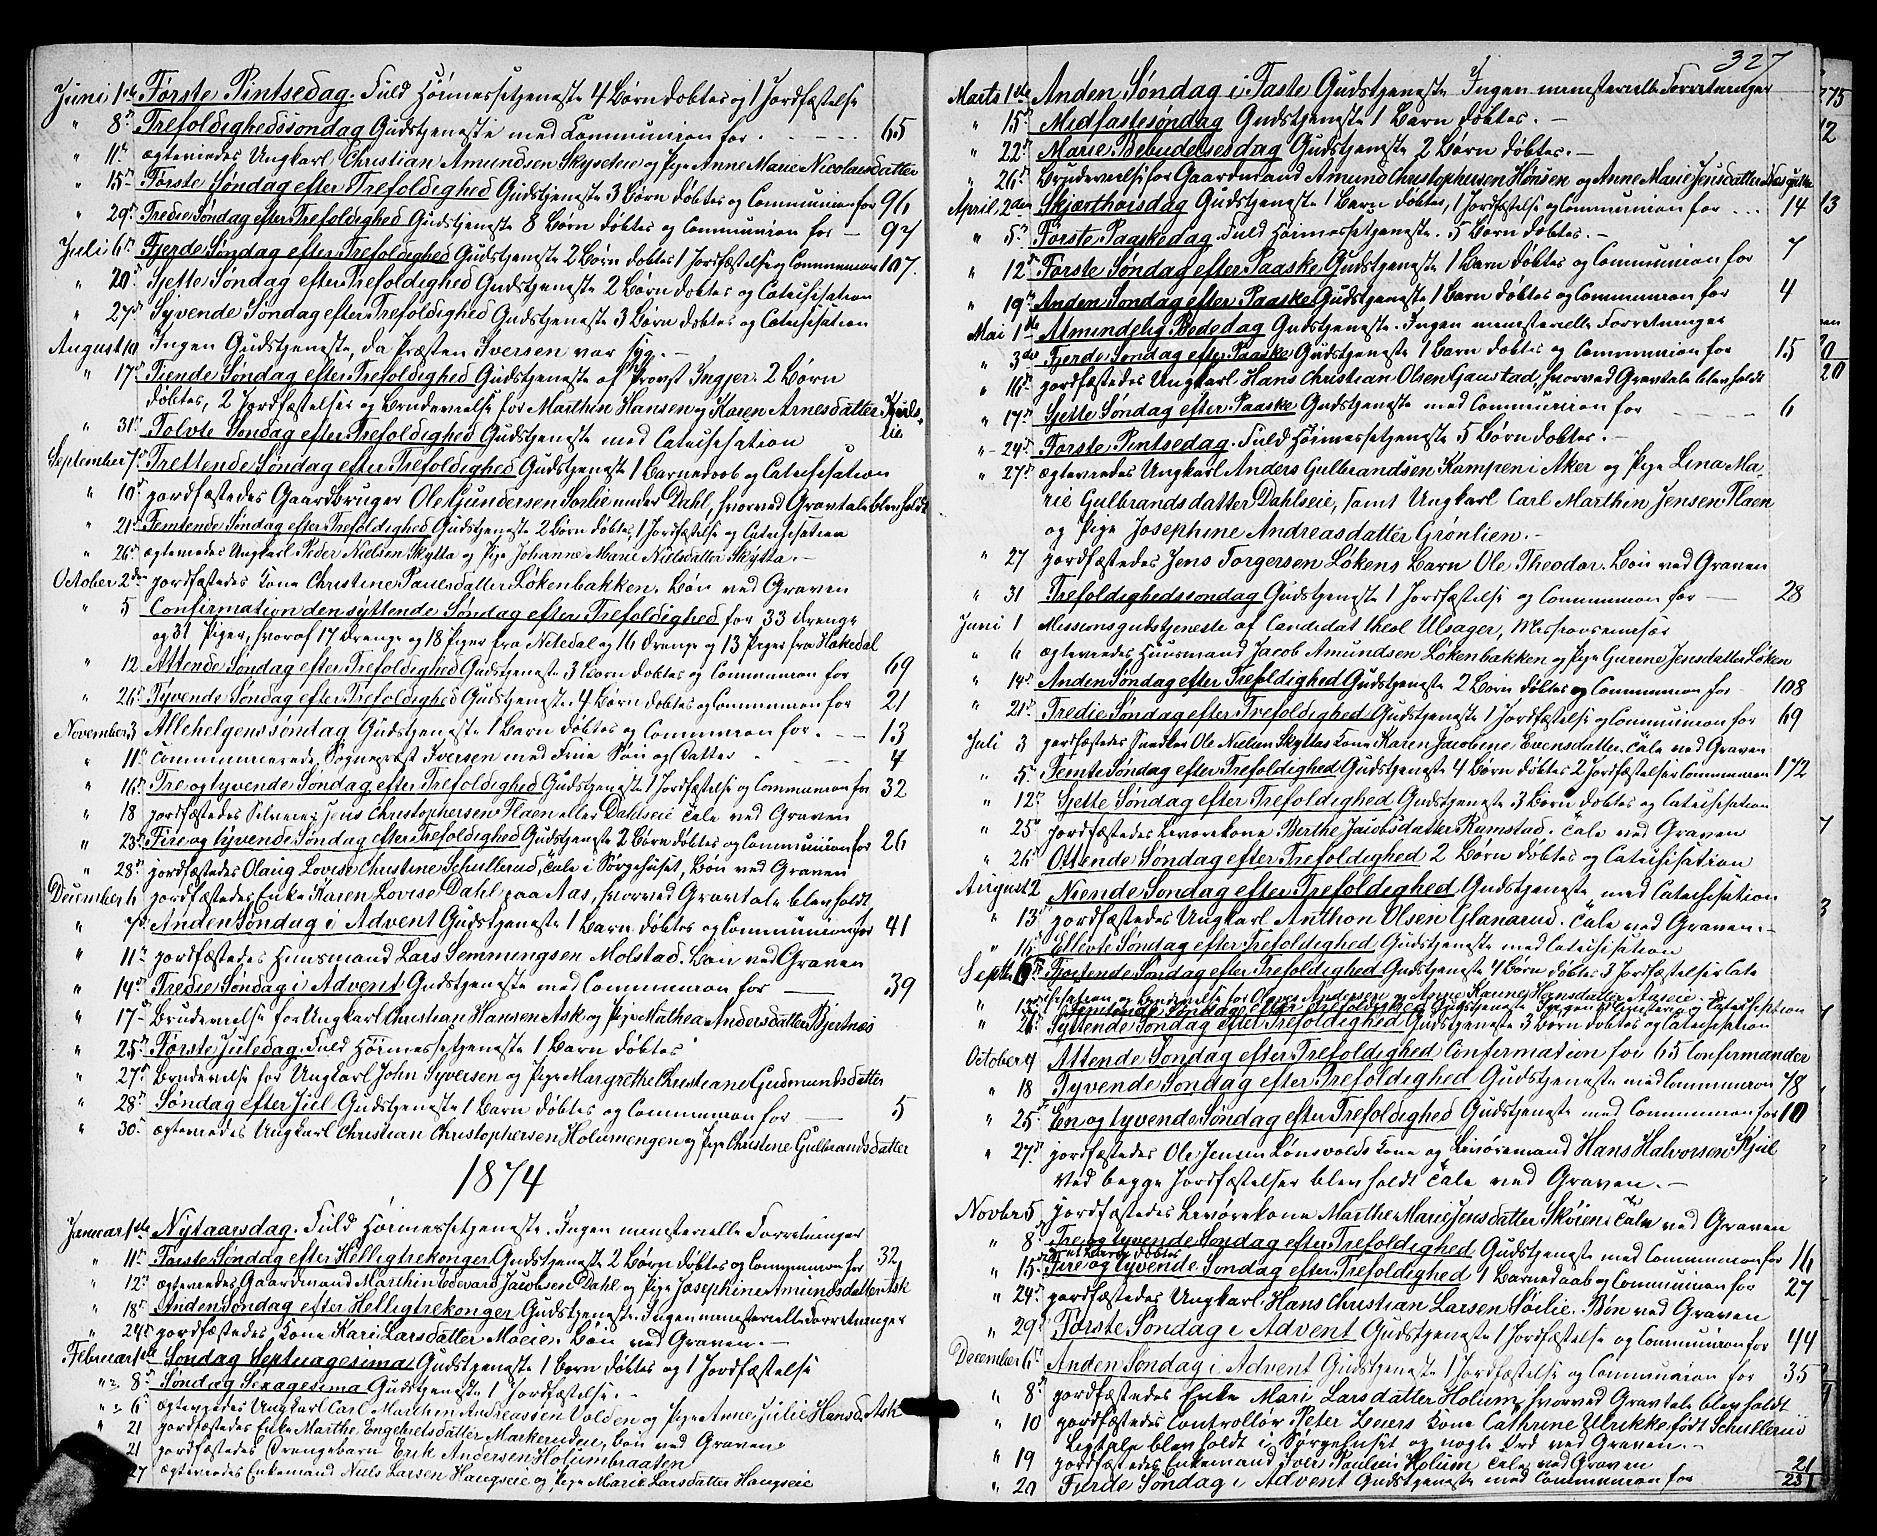 Juni 1ste Første Pintsedag. Fuld Høimessetjeneste 4 Børn døbtes og 1 Jordfæstelse
" 8de Trefoldighedssøndag Gudstjeneste med Communion for 65
" 11te ægteviedes Ungkarl Christian Amundsen Skyseie og Pige Anne Marie Nicolaisdatter
" 15de Første Søndag efter Trefoldighed Gudstjeneste 3 Børn døbtes og Communion for 96
" 29de Tredie Søndag efter Trefoldighed Gudstjeneste 8 Børn døbtes og Communion for 97
Juli 6te Fjerde Søndag efter Trefoldighed Gudstjeneste 2 Børn døbtes 1 Jordfæstelse og Communion 107.
" 20de Sjette Søndag efter Trefoldighed Gudstjeneste 2 Børn døbtes og Catechisation
" 27de Syvende Søndag efter Trefoldighed Gudstjeneste 3 Børn døbtes og Catechisation
August 10 Ingen Gudstjeneste, da Præsten Iversen var syg.
" 17de Tiende Søndag efter Trefoldighed Gudstjeneste af Provst Ingjer. 2 Børn
døbtes, 2 Jordfæstelser og Brudevielse for Marthin Hansen og Karen Arnesdatter
" 31te Tolvte Søndag efter Trefoldighed Gudstjeneste med Catechisation
September 7de Trettende Søndag efter Trefoldighed Gudstjeneste 1 Barnedaab og Catechisation
" 10de jordfæstedes Gaardbruger Ole Gundersen Sørlie under Dahl, hvorved Gravtale blev holdt
" 21de Femtende Søndag efter Trefoldighed Gudstjeneste 2 Børn døbtes, 1 Jordfæstelse og Catechisation
" 26de ægteviedes Ungkarl Peder Nielsen Skytta og Pige Johanne Marie Nielsdatter Skytta.
October 2den jordfæstedes Kone Christine Paulsdatter Løkenbakken. Bøn ved Graven
" 5 Confirmation den syttende Søndag efter Trefoldighed for 33 Drenge
og 31 Piger, hvoraf 17 Drenge og 18 Piger fra Nitedal og 16 Drenge og 13 Piger fra Hakedal
" 12 Attende Søndag efter Trefoldighed Gudstjeneste 3 Børn døbtes og Communion for 69
" 26de Tyvende Søndag efter Trefoldighed Gudstjeneste 4 Børn døbtes og Communion for 21
November 3 Allehelgenssøndag Gudstjeneste 1 Barn døbtes og Communion for 13
" 11te communicerede Sognepræst Iversen med Frue Søn og Datter 4
" 16de Tre og tyvende Søndag efter Trefoldighed Gudstjeneste 1 Jordfæstelse og Communion for 32
" 18 jordfæstedes Jens Christophersen Flaen eller Dahlseie Tale ved Graven
" 23de Fire og tyvende Søndag efter Trefoldighed Gudstjeneste 2 Børn døbtes og Communion for 26
" 28de jordfæstedes Olaug Lovise Christine Schullerud, Tale i Sørgehuset, Bøn ved Graven
December 6 jordfæstedes Enke Karen Lovise Dahl paa Aas, hvorved Gravtale blev holdt
" 7de Anden Søndag i Advent Gudstjeneste 1 Barn døbtes og Communion for 41
" 11te jordfæstedes Huusmand Lars Semmingsen Molstad. Bøn ved Graven
" 14de Tredie Søndag i Advent Gudstjeneste med Communion for 39
" 17de Brudevielse for Ungkarl Christian Hansen Ask og Pige Mathea Andersdatter Bjertnæs
" 25de Første Juledag. Fuld Høimessetjeneste 1 Barn døbtes
" 27de Brudevielse for Ungkarl John Syversen og Pige Margrethe Christiane Gudmundsdatter
" 28de Søndag efter Juul Gudstjeneste 1 Barn døbtes og Communion for 5
" 30te ægteviedes Ungkarl Christian Christophersen Holumengen og Pige Christine Gulbrandsdatter
1874
Januar 1ste Nytaarsdag. Fuld Høimessetjeneste. Ingen ministerielle Forretninger
" 11te Første Søndag efter Helligtrekonger Gudstjeneste 2 Børn døbtes og Communion for 32
" 12te ægteviedes Gaardmand Marthin Edevard Jacobsen Dahl og Pige Josephine Amundsdatter Ask
" 18de Anden Søndag efter Helligtrekonger Gudstjeneste. Ingen ministerielle Forretninger
" 24de jordfæstedes Kone Kari Larsdatter Moeie. Bøn ved Graven.
Februar 1ste Søndag Septuagesima Gudstjeneste 1 Barn døbtes og 1 Jordfæstelse
" 8de Søndag Sexagesima Gudstjeneste 1 Jordfæstelse.
" 6te ægteviedes Ungkarl Carl Marthin Andreassen Volden og Pige Anne Julie Hansd. Ask
" 21 jordfæstedes Enke Marthe Engebretsdatter Markeruden, Bøn ved Graven
21 jordfæstedes Drengebarn Erik Andersen Holumbraaten
27 ægteviedes Enkemand Niels Larsen Haugseie og Pige Marie Larsdatter Haugseie
327
Marts 1ste Anden Søndag i Faste Gudstjeneste Ingen ministerielle Forretninger
" 15de Midfastesøndag Gudstjeneste 1 Barn døbtes.
" 22de Marie Bebudelsesdag Gudstjeneste 2 Børn døbtes.
" 26de Brudevielse for Gaardmand Amund Christophersen Hønsen og Anne Marie Jensdatter
April 2den Skjærthorsdag Gudstjeneste 1 Barn døbtes, 1 Jordfæstelse og Communion for 14
" 5te Første Paaskedag. Fuld Høimessetjeneste. 5 Børn døbtes.
" 12te Første Søndag efter Paaske Gudstjeneste 1 Barn døbtes og Communion for 7
" 19de Anden Søndag efter Paaske Gudstjeneste 1 Barn døbtes og Communion for 4
Mai 1ste Almindelig Bededag Gudstjeneste. Ingen ministerielle Forretninger
" 3die Fjerde Søndag efter Paaske Gudstjeneste 1 Barn døbtes og Communion for 15
" 16de jordfæstedes Ungkarl Hans Christian Olsen Gaustad, hvorved Gravtale blev holdt
" 17de Sjette Søndag efter Paaske Gudstjeneste med Communion for 6
" 24de Første Pintsedag. Fuld Høimessetjeneste 5 Børn døbtes.
" 27de ægteviedes Ungkarl Anders Gulbrandsen Kampen i Aker og Pige Lina Ma
rie Gulbrandsdatter Dahlseie, samt Ungkarl Carl Marthin Jensen Flaen
og Pige Josephine Andreasdatter Grønlien.
" 27 jordfæstedes Jens Torgersen Løkens Barn Ole Theodor. Bøn ved Graven
" 31 Trefoldighedssøndag Gudstjeneste 1 Jordfæstelse og Communion for 28
Juni 1 Missionsgudstjeneste af Candidat theol Ulsager, Missionsemissær
" 6 ægteviedes Huusmand Jacob Amundsen Løkenbakken og Pige Gurine Jensdatter Løken
" 14de Anden Søndag efter Trefoldighed Gudstjeneste 2 Børn døbtes og Communion for 108
" 21de Tredie Søndag efter Trefoldighed Gudstjeneste 1 Jordfæstelse og Communion for 69
Juli 3 jordfæstedes Snedker Ole Nielsen Skyttas Kone Karen Jacobine Evensdatter. Tale ved Graven
" 5te Femte Søndag efter Trefoldighed Gudstjeneste 4 Børn døbtes 2 Jordfæstelser Communion 172
" 12te Sjette Søndag efter Trefoldighed Gudstjeneste 3 Børn døbtes og Catechisation
" 25de jordfæstedes Leiekone Berthe Jacobsdatter Rumstad. Tale ved Graven
" 26 Ottende Søndag efter Trefoldighed 2 Børn døbtes og Catechisation
August 2 Niende Søndag efter Trefoldighed Gudstjeneste med Catechisation
" 13de jordfæstedes Ungkarl Anthon Olsen Glanerud. Tale ved Graven.
" 16de Ellevte Søndag efter Trefoldighed Gudstjeneste med Catechisation
Septbr 6te Fjortende Søndag efter Trefoldighed Gudstjeneste 4 Børn døbtes 3 Jordfæstelser Cate
chisation og Brudevielse for
" 26 Syttende Søndag efter Trefoldighed Gudstjeneste 3 Børn døbtes og Catechisation
October 4 Attende Søndag efter Trefoldighed Confirmation for 65 Confirmander
" 18 Tyvende Søndag efter Trefoldighed Gudstjeneste med Communion 78
" 25de En og tyvende Søndag efter Trefoldighed Gudstjeneste med Communion for 10
" 27de jordfæstedes Ole Jensen Lønsvolds Kone og Leiemand Hans Halvorsen Kjul
Ved begge Jordfæstelser blev holdt Tale ved Graven.
Novbr 5 jordfæstedes Leiekone Marthe Marie Jensdatter Skøien. Tale ved Graven
" 8de Tre og tyvende Søndag efter Trefoldighed Gudstjeneste med Communion for 16
" 15de Fire og tyvende Søndag efter Trefoldighed 1 Barnedaab og Communion for 27
" 24de jordfæstedes Ungkarl Hans Christian Larsen Sørlie. Bøn ved Graven
" 29de Første Søndag i Advent Gudstjeneste 1 Jordfæstelse og Communion for 44
December 6te Anden Søndag i Advent Gudstjeneste 1 Jordfæstelse og Communion for 35
" 8de jordfæstedes Enke Mari Larsdatter Holum, hvorved Gravtale blev holdt
" 10 jordfæstedes Controllør Peter Beiers Kone Cathrine Ulrikke, født Schullerud
Ligtale blev holdt i Sørgehuset og nogle Ord ved Graven.
" 19 jordfæstedes Enkemand Iver Paulsen Holum Tale ved Graven
" 20 Fjerde Søndag i Advent Gudstjeneste med Communion for 21